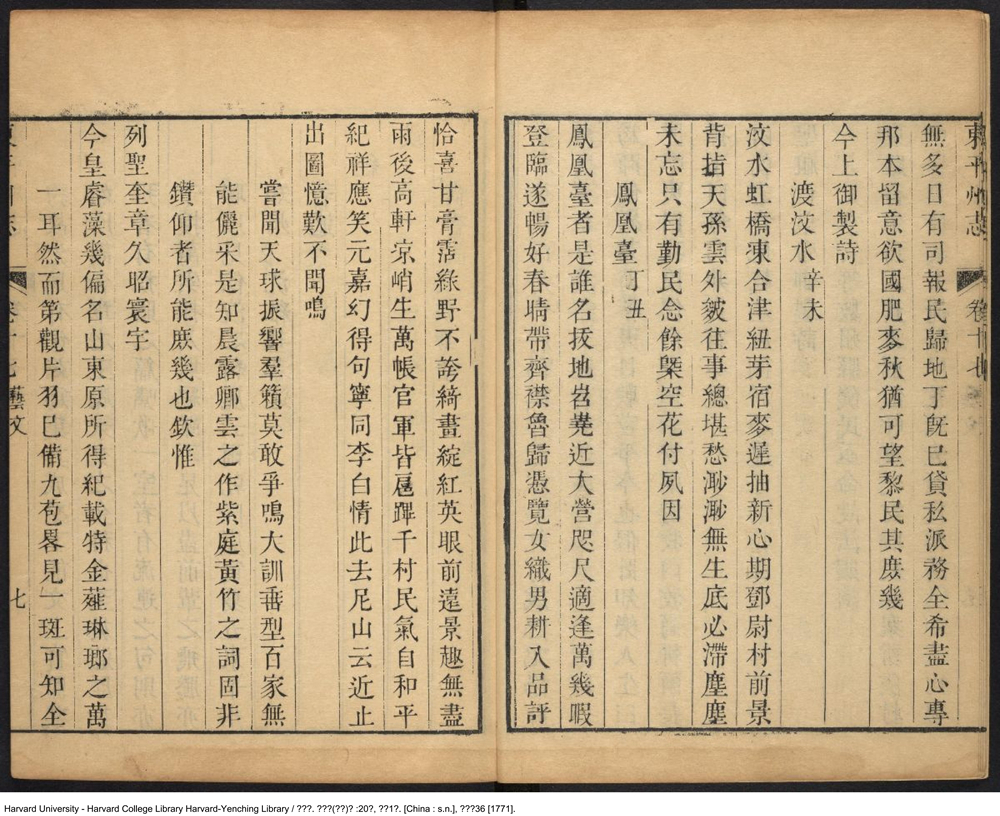 東平州志 卷十七
無多日有司報民歸地丁旣已貸私派務全希盡心專
那本留意欲國肥麥秋猶可望黎民其庶幾
今上御製詩
渡汶水 辛未
汶水虹橋東合津紐芽宿麥遲抽新心期鄧尉村前景
背指天孫雲外皴往事總堪愁渺渺無生底必滯塵塵
未忘只有勤民念餘槩空花付夙因
鳳凰臺 丁丑
鳳凰臺者是誰名拔地岧嶤近大營咫尺適逢萬幾暇
登臨遂暢好春晴帶齊襟魯歸憑覽女織男耕入品評
恰喜甘膏霑綠野不誇綺畫綻紅英眼前遠景趣無盡
雨後高軒涼峭生萬帳官軍皆扈蹕千村民氣自和平
紀祥應笑元嘉幻得句寧同李白情此去尼山云近止
出圖憶歎不聞鳴
嘗聞天球振響羣籟莫敢爭鳴大訓垂型百家無
能儷采是知晨露卿雲之作紫庭黃竹之詞固非
鑽仰者所能庶幾也欽惟
列聖奎章久昭寰宇
今皇睿藻幾偏名山東原所得紀載特金薤琳瑯之萬
一耳然而第觀片羽巳備九苞畧見一斑可知全
卷十七 藝文 七
Harvard University - Harvard College Library Harvard-Yenching Library / ???. ???(??)? :20?, ??1?. [China : s.n.], ???36 [1771].